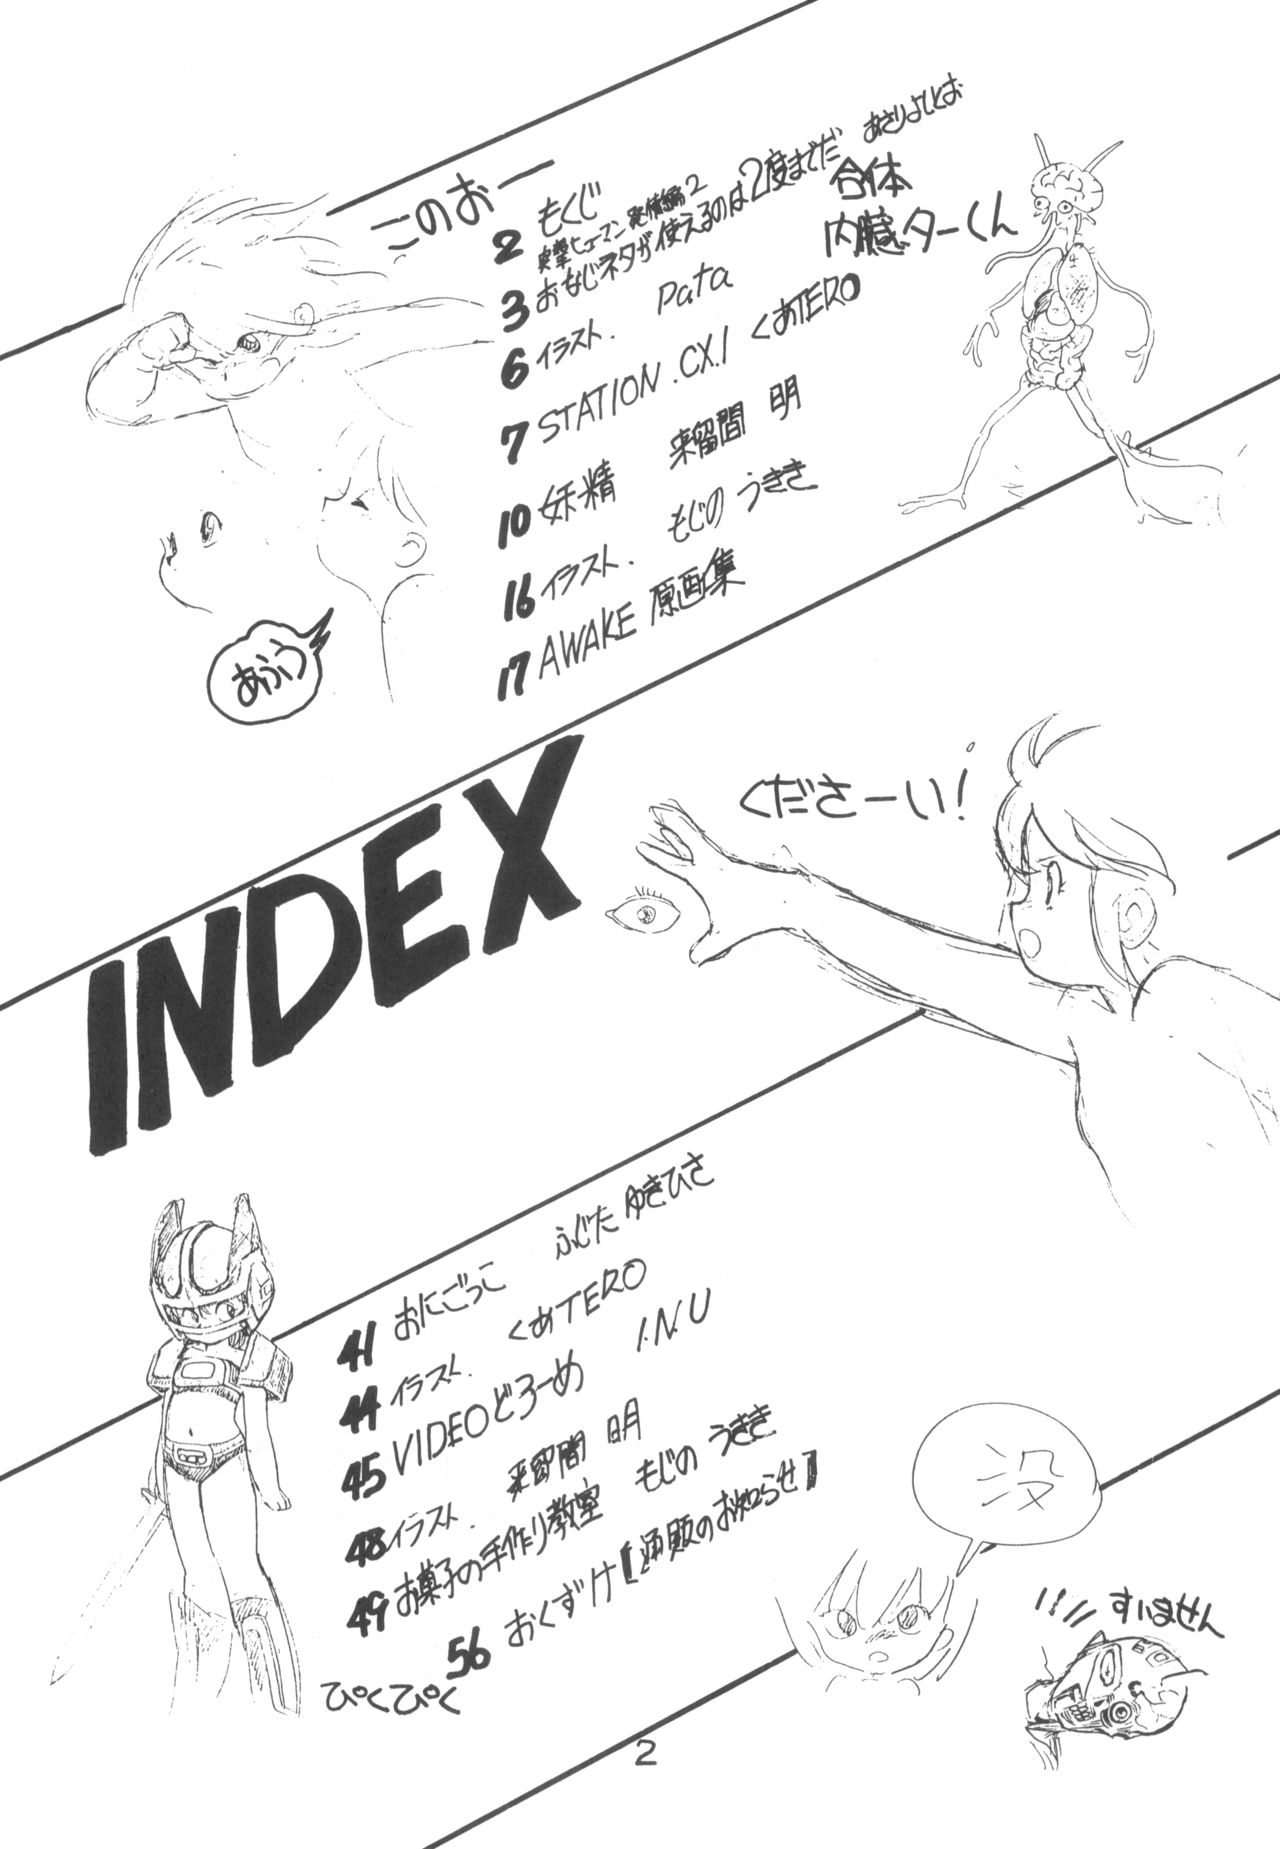 このおー
2 もくじ
突撃ヒューマン 発情編2
3 おなじネタが使えるのは2度までだ あさりよしとお
合体
内臓ターくん
6 イラスト. Pata
7 STATION.CX.1 くあTERO
10 妖精 来留間 明
16 イラスト. もじの うきき
17 AWAKE 原画集
あふぅ
INDEX
くださーい!
41 おにごっこ ふじた ゆきひさ
44 イラスト. くあTERO
45 VIDEOどろーめ I.N.U
48 イラスト. 来留間 明
49 お菓子の手作り教室 もじの うきき
56 おくずけ【通販のお知らせ】
没
すいません
ぴくぴく
2